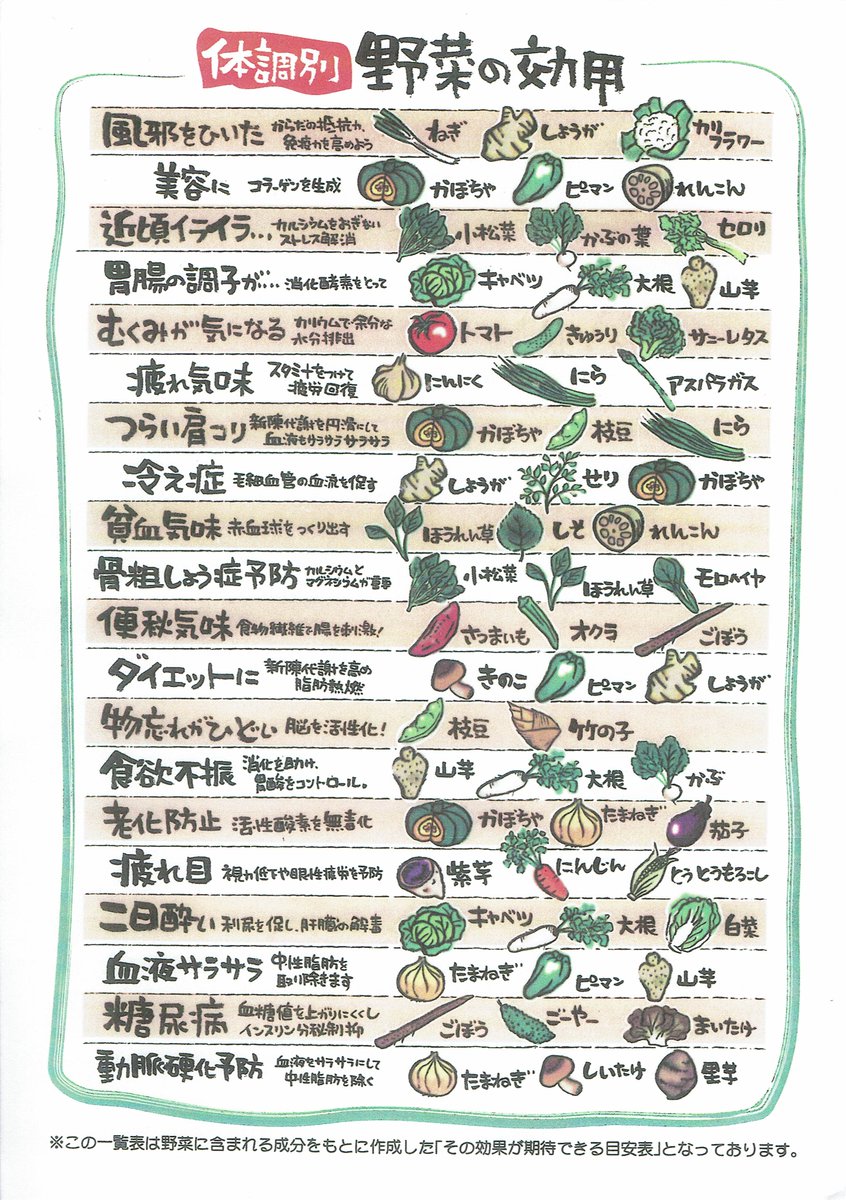 体調別 野菜の効用
風邪をひいた からだの抵抗力、免疫力を高めよう ねぎ しょうが カリフラワー
美容に コラーゲンを生成 かぼちゃ ピーマン れんこん
近頃イライラ… カルシウムをおぎないストレス解消 小松菜 かぶの葉 セロリ
胃腸の調子が… 消化酵素をとって キャベツ 大根 山芋
むくみが気になる カリウムで余分な水分排出 トマト きゅうり サニーレタス
疲れ気味 スタミナをつけて疲労回復 にんにく にら アスパラガス
つらい肩コリ 新陳代謝を円滑にして血液もサラサラサラサラ かぼちゃ 枝豆 にら
冷え症 毛細血管の血流を促す しょうが せり かぼちゃ
貧血気味 赤血球をつくり出す ほうれん草 しそ れんこん
骨粗しょう症予防 カルシウムとマグネシウムが豊事 小松菜 ほうれん草 モロヘイヤ
便秘気味 食物繊維で腸を刺激! さつまいも オクラ ごぼう
ダイエットに 新陳代謝を高め脂肪熱燃 きのこ ピーマン しょうが
物忘れがひどい 脳を活性化! 枝豆 竹の子
食欲不振 消化を助け、胃酸をコントロール。 山芋 大根 かぶ
老化防止 活性酸素を無毒化 かぼちゃ たまねぎ 茄子
疲れ目 視力低下や眼性疲労を予防 紫芋 にんじん とうとうもろこし
二日酔い 利尿を促し、肝臓の解毒 キャベツ 大根 白菜
血液サラサラ 中性脂肪を取り除きます たまねぎ ピーマン 山芋
糖尿病 血糖値を上がりにくくしインスリン分秘制抑 ごぼう ごーやー まいたけ
動脈硬化予防 血液をサラサラにして中性脂肪を除く たまねぎ しいたけ 里芋
※この一覧表は野菜に含まれる成分をもとに作成した「その効果が期待できる目安表」となっております。